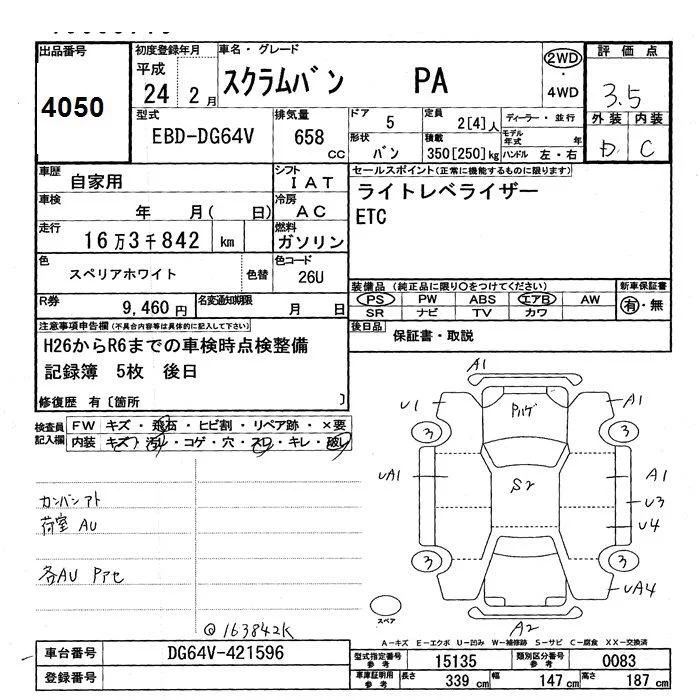 出品番号
4050
初度登録年月
平成
24 2月
車名・グレード
スクラムバン PA
2WD
・
4WD
評価点
3.5
外装 内装
D C
型式
EBD-DG64V
排気量
658
CC
ドア
5
定員
2[4]人
ディーラー・並行
モデル年式 年
形状
バン
積載
350[250]kg
ハンドル 左・右
車歴
自家用
シフト
IAT
車検
年 月( 日)
冷房
AC
走行
16万3千842 km
燃料
ガソリン
色
スペリアホワイト
色替
色コード
26U
R券
9,460円
名変通知期限
月 日
セールスポイント(正常に機能するものに限ります)
ライトレベライザー
ETC
装備品(純正品に限り○をつけてください)
PS PW ABS エアB AW
SR ナビ TV カワ
新車保証書
有・無
後日品
保証書・取説
注意事項申告欄(不具合内容等は具体的に記入して下さい)
H26からR6までの車検時点検整備
記録簿 5枚 後日
修復歴 有〔箇所 〕
検査員記入欄
FW キズ・飛石・ヒビ割・リペア跡・×要
内装 キズ・汚レ・コゲ・穴・スレ・キレ・破レ
カンバンアト
荷室 AU
各AU Pアセ
@163842K
A1
U1
A1
Pハゲ
3
3
UA1
S2
A1
U3
U4
3
3
UA4
A2
スペア
A-キズ E-エクボ U-凹み W-補修跡 S-サビ C-腐食 XX-交換済
車台番号
DG64V-421596
登録番号
型式指定番号
参考
15135
類別区分番号
参考
0083
車庫証明用
参考
長さ
339 cm
幅
147 cm
高さ
187 cm